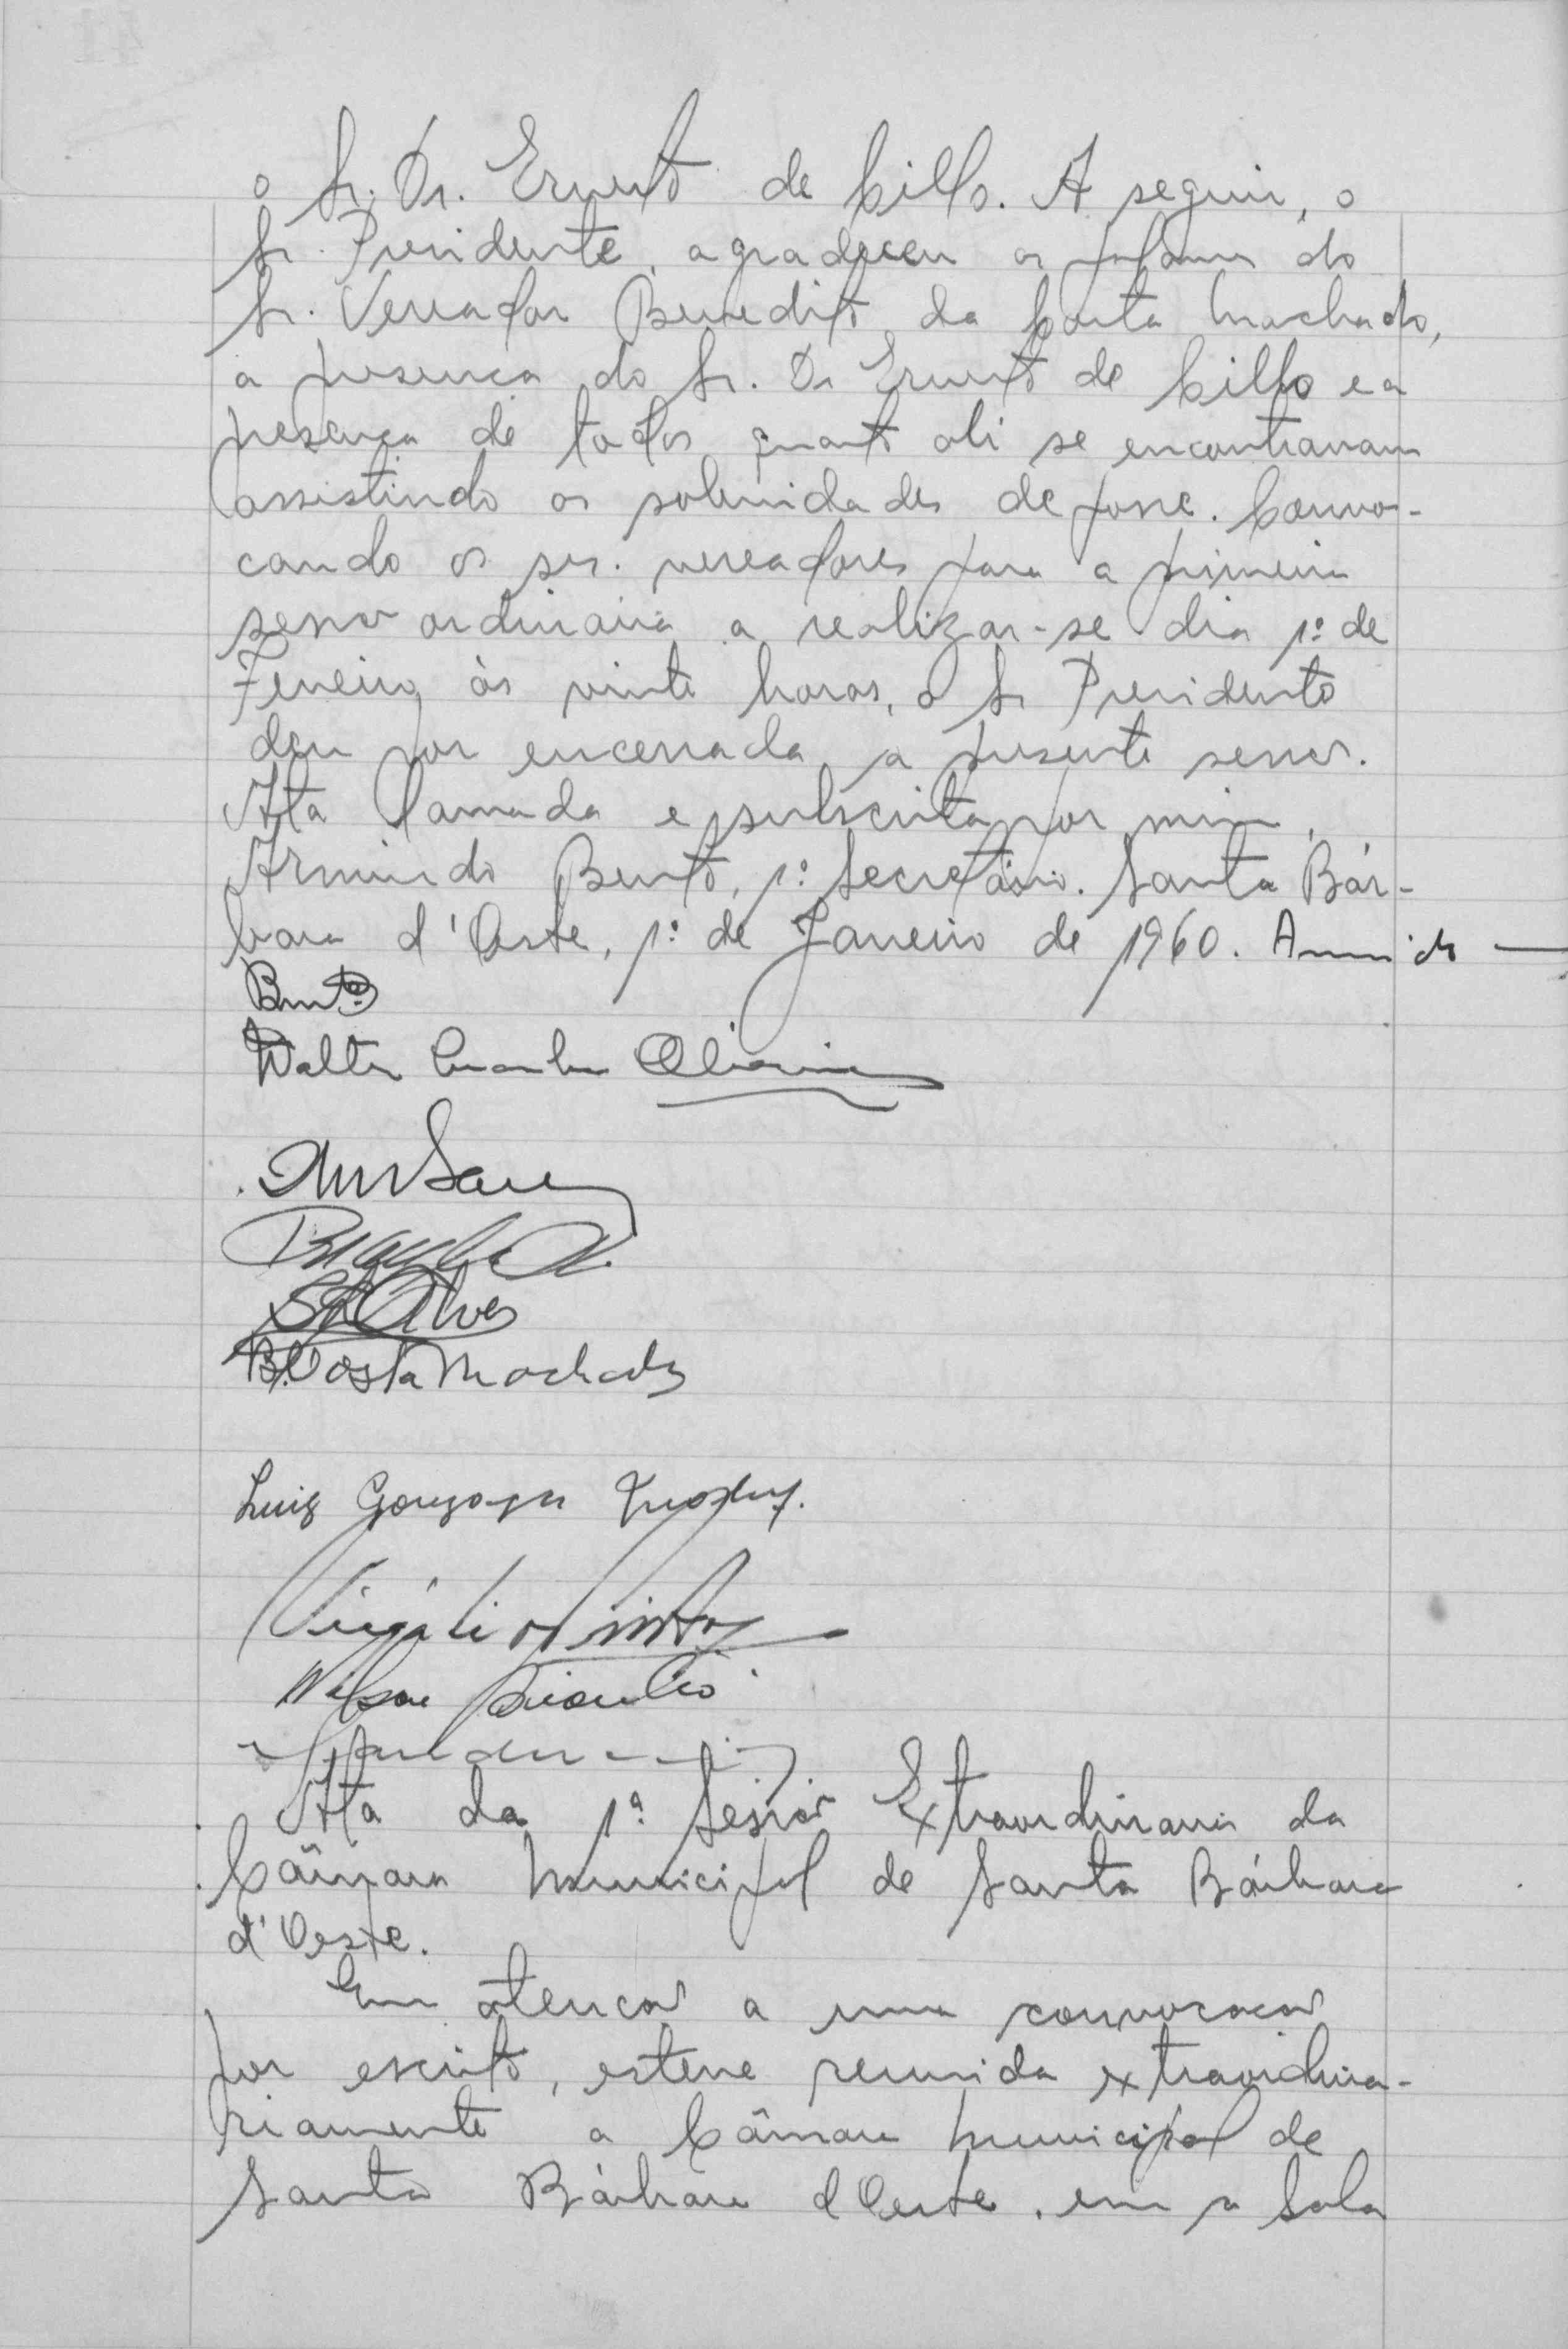 o Sr. Dr. Ernesto de Cillo. A seguir, o
Sr. Presidente, agradeceu as palavras do
Sr. Vereador Benedito da Costa Machado,
a presença do Sr. Dr Ernesto de Cillo e a
presença de todos quanto ali se encontravam
assistindo as solenidades de posse. Convo-
cando os srs. vereadores para a primeira
sessão ordinária a realizar-se dia 1º de
Fevereiro às vinte horas, o Sr Presidente
deu por encerrada a presente sessão.
Ata lavrada e subscrita por mim,
Armindo Bento, 1º Secretário. Santa Bár-
bara d'Oeste, 1º de Janeiro de 1960. Armindo
Bento
Walter
Alves
B. Costa Machado
Luiz Gonzaga
Virgílio
Wilson
Ata da 1ª Sessão Extraordinaria da
Câmara Municipal de Santa Bárbara
d'Oeste.
Em atenção a uma convocação
por escrito, esteve reunida extraordina-
riamente a Câmara Municipal de
Santa Bárbara d'Oeste, em a Sala